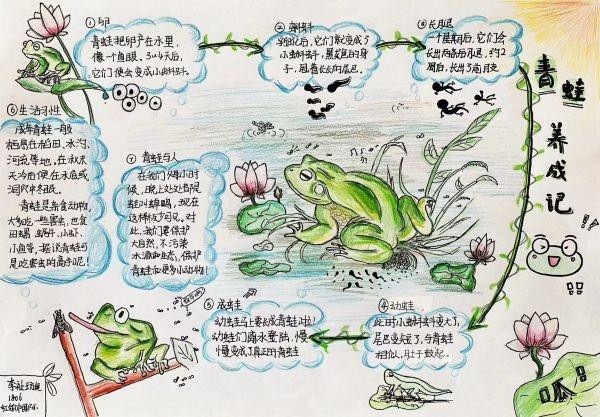 青蛙养成记
① 卵
青蛙把卵产在水里,
像一个鱼眼。3~4天后,
它们便会变成小蝌蚪。
② 蝌蚪
它们就变成了
小蝌蚪,黑花色的身
子,甩着长长的尾巴。
③ 长后腿
一个星期后,它们会
长出两条后腿,约2
周后,长出了前支
④ 幼蛙
此日小蝌蚪变大了,
尾巴变短了,与青蛙
相似,肚子鼓起。
⑤ 成蛙
幼蛙马上要长成青蛙啦!
幼蛙们离水登陆,慢
慢变成了真正的青蛙
⑥ 生活习性
成年青蛙一般
栖息在稻田、水沟、
河流等地,在秋末
天冷后便在水底或
洞穴中冬眠。
青蛙是杂食动物,
大多吃一些害虫,也食
田螺、蜗牛、小虾、
小鱼等,
是吃害虫的高手呢!
⑦ 青蛙与人
在我们小时
候,晚上处处有青
蛙叫蝉鸣,现在
这情景少见。对
此,我们要保护
大自然,不污染
水源和生态,保护
青蛙和更多小动物!
呱!
1806